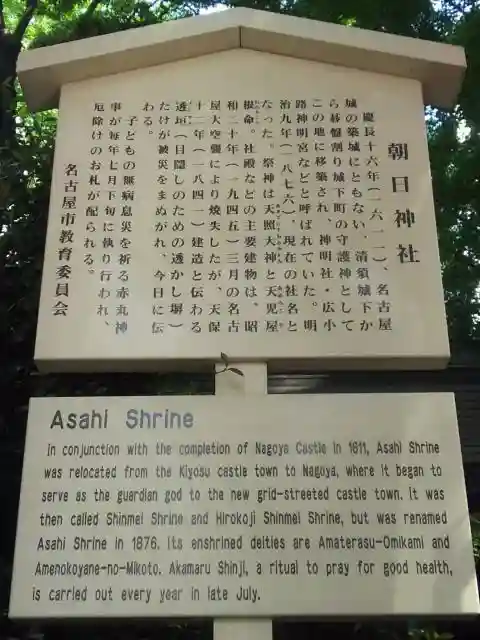 朝日神社
慶長十六年(一六一一)、名古屋
城の築城にともない、清須城下か
ら碁盤割り城下町の守護神として
この地に移築され、神明社・広小
路神明宮などと呼ばれていた。明
治九年(一八七六)、現在の社名と
なった。祭神は天照大神と天児屋
根命。社殿などの主要建物は、昭
和二十年(一九四五)三月の名古
屋大空襲により焼失したが、天保
十二年(一八四一)建造と伝わる
透垣(目隠しのための透かし塀)
だけが被災をまぬがれ、今日に伝
わる。
子どもの無病息災を祈る赤丸神
事が毎年七月下旬に執り行われ、
厄除けのお札が配られる。
名古屋市教育委員会
Asahi Shrine
In conjunction with the completion of Nagoya Castle in 1611, Asahi Shrine
was relocated from the Kiyosu castle town to Nagoya, where it began to
serve as the guardian god to the new grid-streeted castle town. It was
then called Shinmei Shrine and Hirokoji Shinmei Shrine, but was renamed
Asahi Shrine in 1876. Its enshrined deities are Amaterasu-Omikami and
Amenokoyane-no-Mikoto. Akamaru Shinji, a ritual to pray for good health,
is carried out every year in late July.